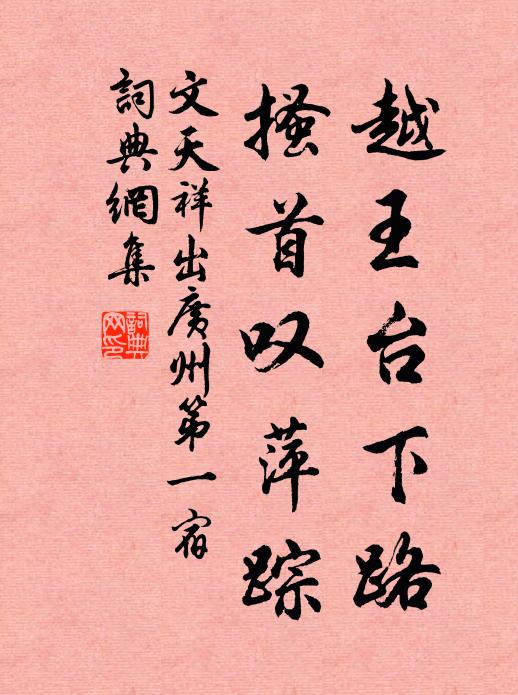 越王台下路
搔首叹萍踪
文天祥出廣州第一宿
詞典網集
詞典網印